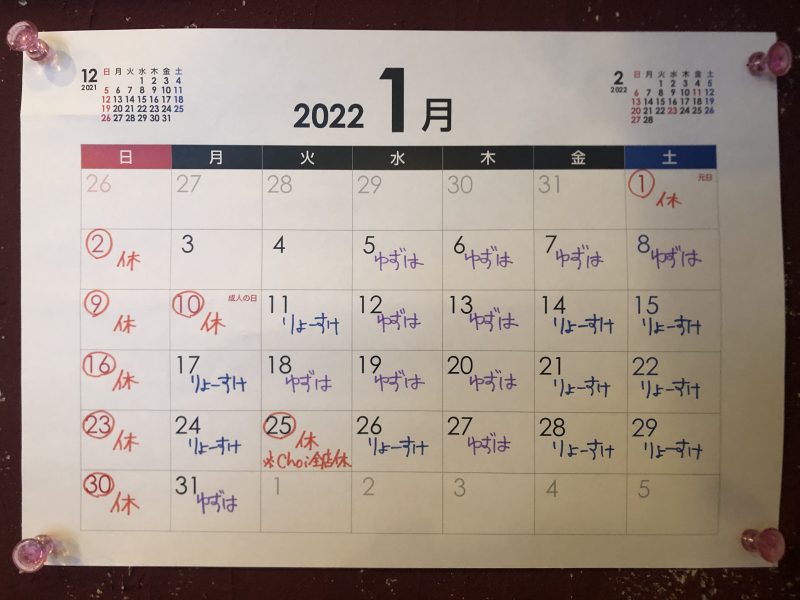 12
2021
日 月 火 水 木 金 土
1 2 3 4
5 6 7 8 9 10 11
12 13 14 15 16 17 18
19 20 21 22 23 24 25
26 27 28 29 30 31
2022 1月
2
2022
日 月 火 水 木 金 土
1 2 3 4 5
6 7 8 9 10 11 12
13 14 15 16 17 18 19
20 21 22 23 24 25 26
27 28
日 月 火 水 木 金 土
26 27 28 29 30 31 1 元日
休
2 3 4 5 6 7 8
休 ゆずは ゆずは ゆずは ゆずは
9 10 成人の日 11 12 13 14 15
休 休 りょーすけ ゆずは ゆずは りょーすけ りょーすけ
16 17 18 19 20 21 22
休 りょーすけ ゆずは ゆずは ゆずは りょーすけ りょーすけ
23 24 25 26 27 28 29
休 りょーすけ 休 りょーすけ ゆずは りょーすけ りょーすけ
※Choi全店休
30 31 1 2 3 4 5
休 ゆずは